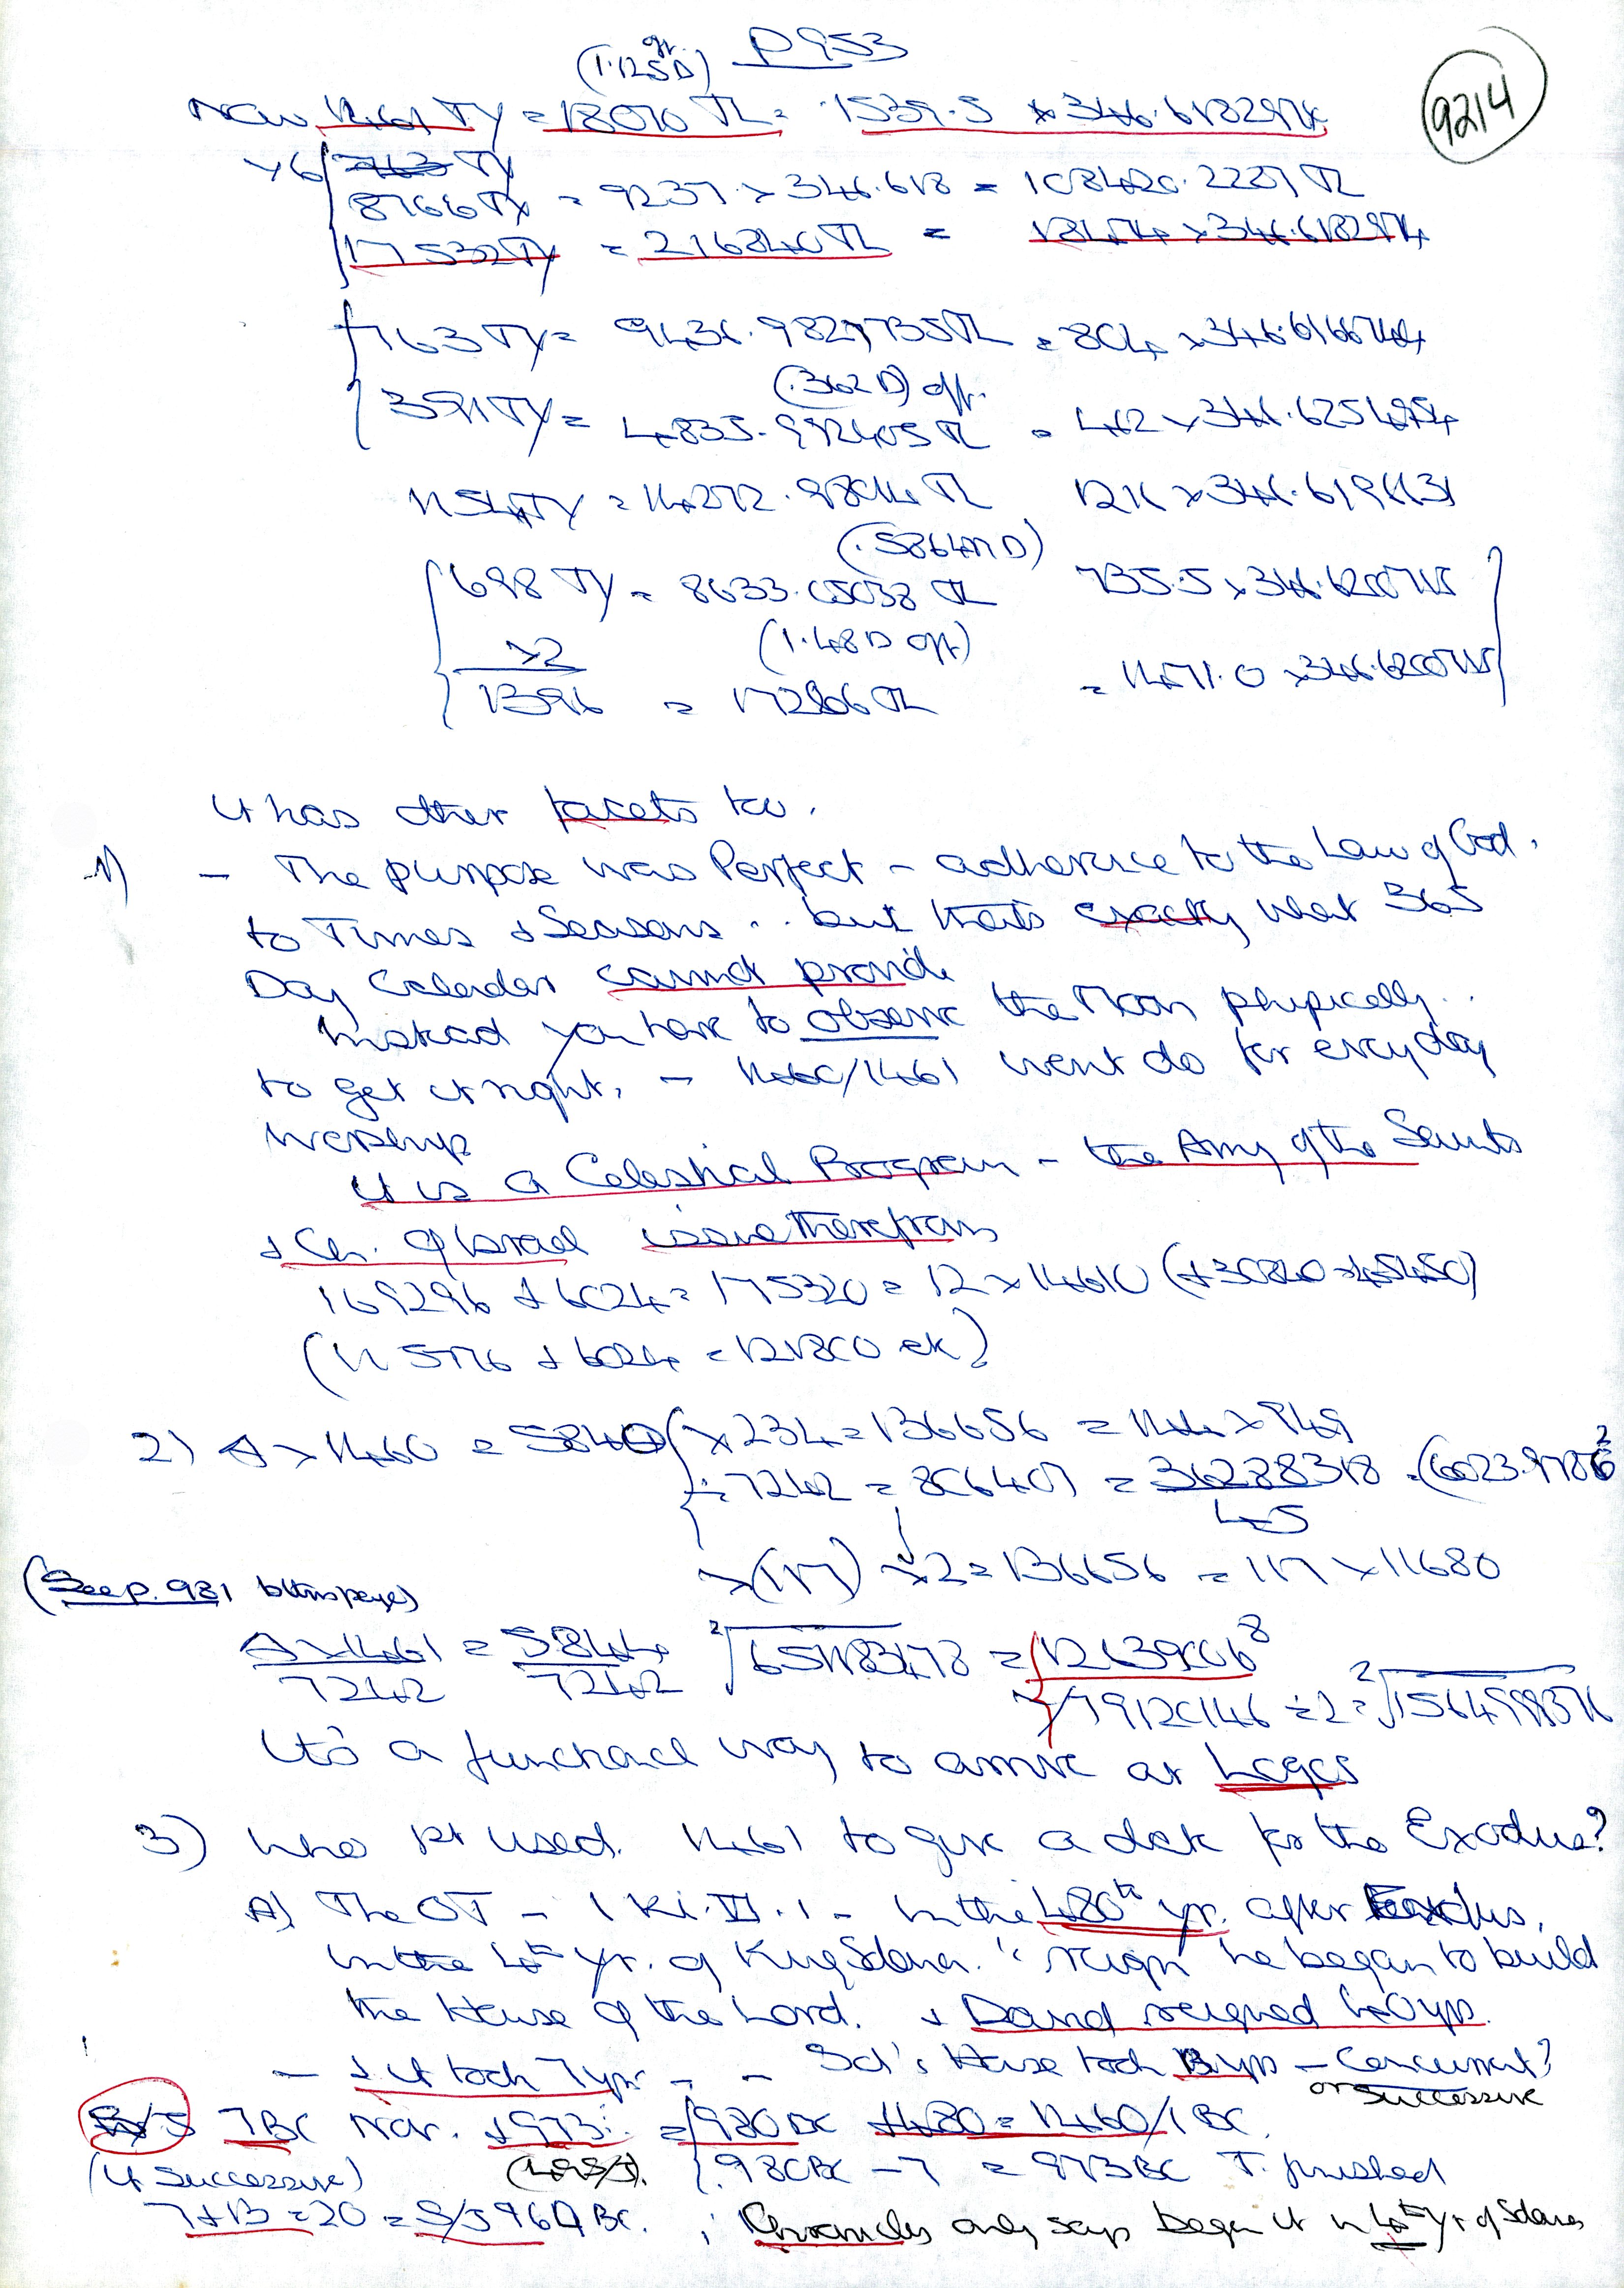 P953
9214
(1.125D) off.
Now 1461 TY = 18070 TL = 1539.5 × 346.618297
×6 763 TY
8766 TY = 9237 × 346.618 = 108420.2227 TL
17532 TY = 216840 TL = × 346.618297
763 TY = 9436.9827735 TL = 804 × 346.6166744
(.362D) off.
391 TY = 4835.992405 TL = 412 × 346.625495
1154 TY = 14272.9804 TL 1216 × 346.619631
(.586471 D)
698 TY = 8633.05038 TL 735.5 × 346.6200715
×2 (1.48D off)
1396 = 17266 TL = 1471.0 × 346.6200715
It has other facets too.
1) – The purpose was Perfect – adherence to the Law of God.
to Times & Seasons .. but that's exactly what 365
Day Calendar cannot provide
Instead you have to observe the Moon physically..
to get it right. – 1460/1461 won't do for everyday
worship
It is a Celestial Program – the Army of the Saints
& Ch. of Israel issue therefrom
169296 + 6024 = 175320 = 12 × 14610 (+30840 )
(115776 + 6024 = 121800 )
2) 4 × 1460 = 5840 × 234 = 136656 = 144 × 949
÷ 7242 = 806407 = 36288318 (6023.9786²
45
× (117) × 2 = 136656 = 117 × 11680
(See p. 981 btm page)
4 × 1461 = 5844 ²√651183478 = 12639006⁸
7242 7242
79120146 ÷ 2 = ²√1564998376
It's a functional way to arrive at Logos
3) Who 1st used 1461 to give a date for the Exodus?
A) The OT – 1 Ki. VI. 1 – In the 480th yr. after Exodus,
in the 4th yr. of King Solomon's reign he began to build
the House of the Lord. & David reigned 40 yrs.
– & it took 7 yrs – – Sol's House took 13 yrs – Concurrent?
or successive
S/J 7BC Mar. + 973; = 980 BC + 480 = 1460/1 BC.
(If successive) 980BC – 7 = 973BC T. finished
7 + 13 = 20 = S/J 960 BC. ; Chronicles only says began it in 4th yr of Solomon